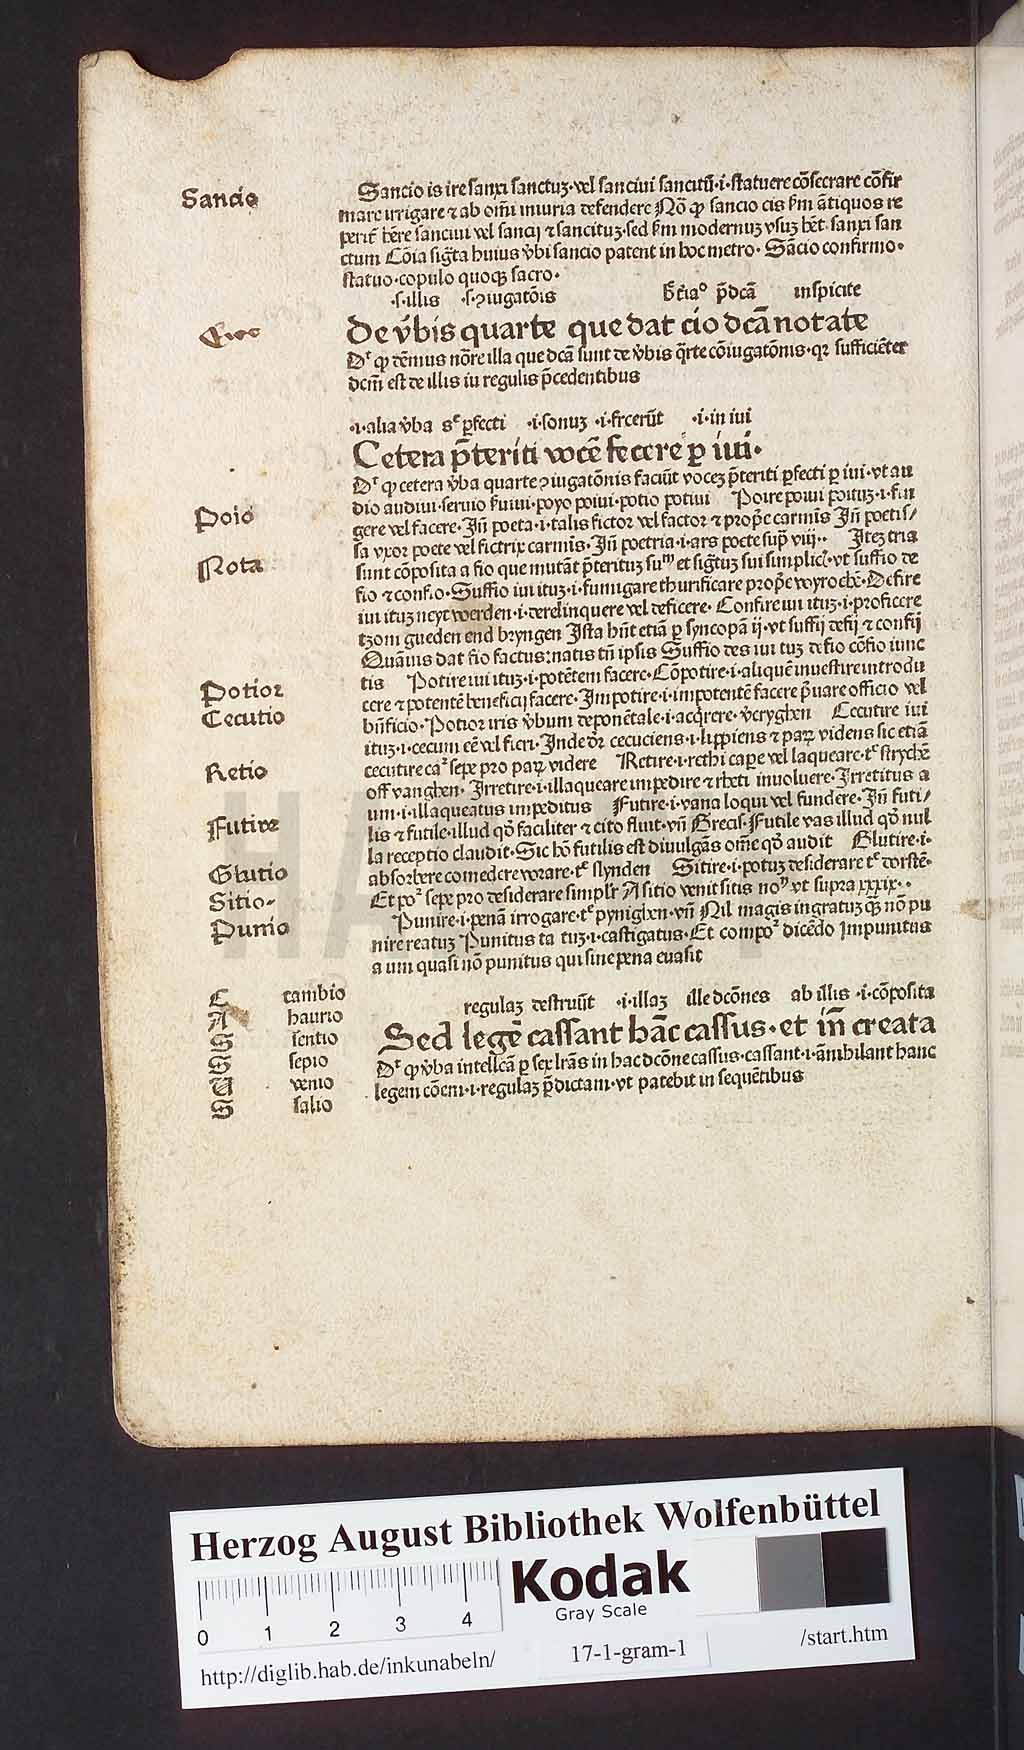 Sancio
Sancio is ire sanxi sanctuꝫ·vel sanciui sancitū·i·statuere cōsecrare cōfir
mare irrigare ⁊ ab om̄i iniuria defendere Nō ꝙ sancio cis s̄m ātiquos re
perit̄ hēre sanciui vel sancij ⁊ sancituꝫ·sed s̄m modernuꝫ vsuꝫ hēt·sanxi san
ctum Cōia sigt̄a huius v̄bi sancio patent in hoc metro· Sācio confirmo·
statuo·copulo quoqꝫ sacro·
·s·illis ·s·ꝯiugatōis p̄dcā inspicite
De v̄bis quarte que dat cio dcā notate
Dʳ ꝙ dēmus nōre illa que dcā sunt de v̄bis q̄rte cōiugatōnis·qꝛ sufficiēter
dcm̄ est de illis iu regulis p̄cedentibus
·i·alia v̄ba sᶜ ꝑfecti ·i·sonuꝫ ·i·frcerūt ·i·in iui
Cetera p̄teriti vocē fecere ꝑ iui·
Dʳ ꝙ cetera v̄ba quarte ꝯiugatōnis faciūt voceꝫ p̄teriti ꝑfecti ꝑ iui·vt au
dio audiui·seruio s̄uiui·poyo poiui·potio potiui Poire poiui poituꝫ·i·fin
Poio
gere vel facere·Jn̄ poeta·i·talis fictor vel factor ⁊ prop̄e carmīs Jn̄ poetis/
sa vxor poete vel fictrix carmīs·Jn̄ poetria·i·ars poete sup̄ viij·· Jteꝫ tria
Nota
sunt cōposita a fio que mutāt p̄terituꝫ suᵐ et sigt̄uꝫ sui simplicꝭ·vt suffio de
fio ⁊ confio·Suffio iui ituꝫ·i·fumigare thurificare prop̄e wyrochē·Defire
iui ituꝫ neyt werden·i·derelinquere vel deficere· Confire iui ituꝫ·i·proficere
tzom gueden end bryngen Jsta hn̄t etiā ꝑ syncopā ij·vt suffij defij ⁊ confij
Quāuis dat fio factus:natis tn̄ ipsis Suffio des iui tuꝫ defio cōfio iunc
tis Potire iui ituꝫ·i·potētem facere·Cōpotire·i·aliquē inuestire introdu
Potior
cere ⁊ potentē beneficij facere·Jmpotire·i·impotentē facere p̄uare officio vel
Cecutio
bn̄ficio·Potior iris v̄bum deponētale·i·acq̄rere·v̄cryghen Cecutire iui
ituꝫ·i·cecum eē vel fieri·Jnde dʳ cecuciens·i·lippiens ⁊ paꝝ videns sic etiā
cecutire caꝛ sepe pro paꝝ videre Retire·i·rethi cape vel laqueare·tᶜ strychē
Retio
off vanghen· Jrretire·i·illaqueare impedire ⁊ rheti inuoluere·Jrretitus a
um·i·illaqueatus impeditus Futire·i·vana loqui vel fundere·Jn̄ futi/
Futire
lis ⁊ futile·illud qd̄ faciliter ⁊ cito fluit·vn̄ Grecis·Futile vas illud qd̄ nul
la receptio claudit·Sic hō futilis est diuulgās om̄e qd̄ audit Glutire·i·
Glutio
absorbere comedere vorare·tᶜ slynden Sitire·i·potuꝫ desiderare tᶜ dorstē·
Sitio·
Et poꝛ sepe pro desiderare simplr̄ A sitio venit sitis noᵐ vt supra xxxix··
Punire·i·penā irrogare·tᶜ pynighen·vn̄ Nil magis ingratuꝫ qꝫ nō pu
Punio
nire reatuꝫ Punitus ta tuꝫ·i·castigatus·Et compoꝛ dicēdo Jmpunitus
a um quasi nō punitus qui sine pena euasit
C cambio
A haurio
S sentio
S sepio
U venio
S salio
regulaꝫ destruūt ·i·illaꝫ ille dcōnes ab illis ·i·cōposita
Sed legē cassant hāc cassus·et in̄ creata
Dʳ ꝙ v̄ba intellcā ꝑ sex lr̄as in hac dcōne cassus·cassant·i·ānihilant hanc
legem cōem·i·regulaꝫ p̄dictam·vt patebit in sequētibus
Herzog August Bibliothek Wolfenbüttel
Kodak
Gray Scale
0 1 2 3 4
17-1-gram-1
http://diglib.hab.de/inkunabeln/
/start.htm